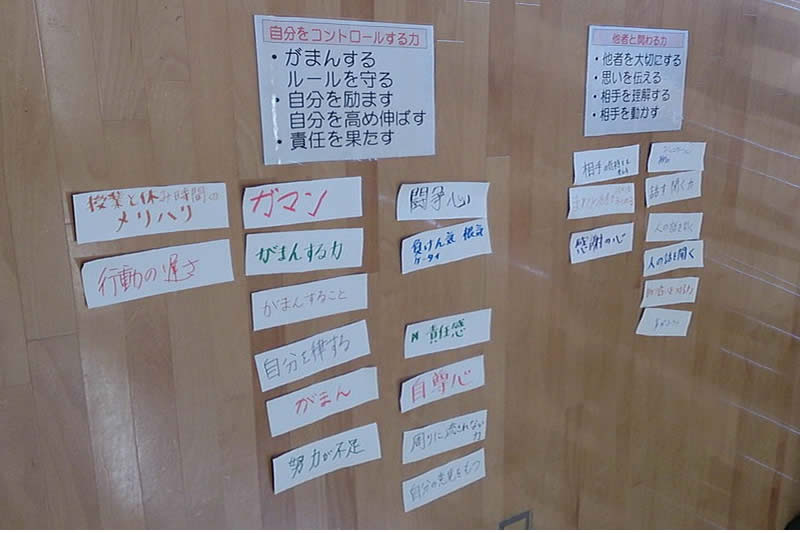 自分をコントロールする力
・がまんする
ルールを守る
・自分を励ます
自分を高め伸ばす
・責任を果たす
他者と関わる力
・他者を大切にする
・思いを伝える
・相手を理解する
・相手を動かす
授業と休み時間の
メリハリ
行動の遅さ
ガマン
がまんする力
がまんすること
自分を律する
がまん
努力が不足
闘争心
負けん気 根気
ケータイ
責任感
自尊心
周りに流されない
力
自分の意見をもつ
相手の
感謝の心
話す 聞く力
人の話を聞く
人の話を聞く